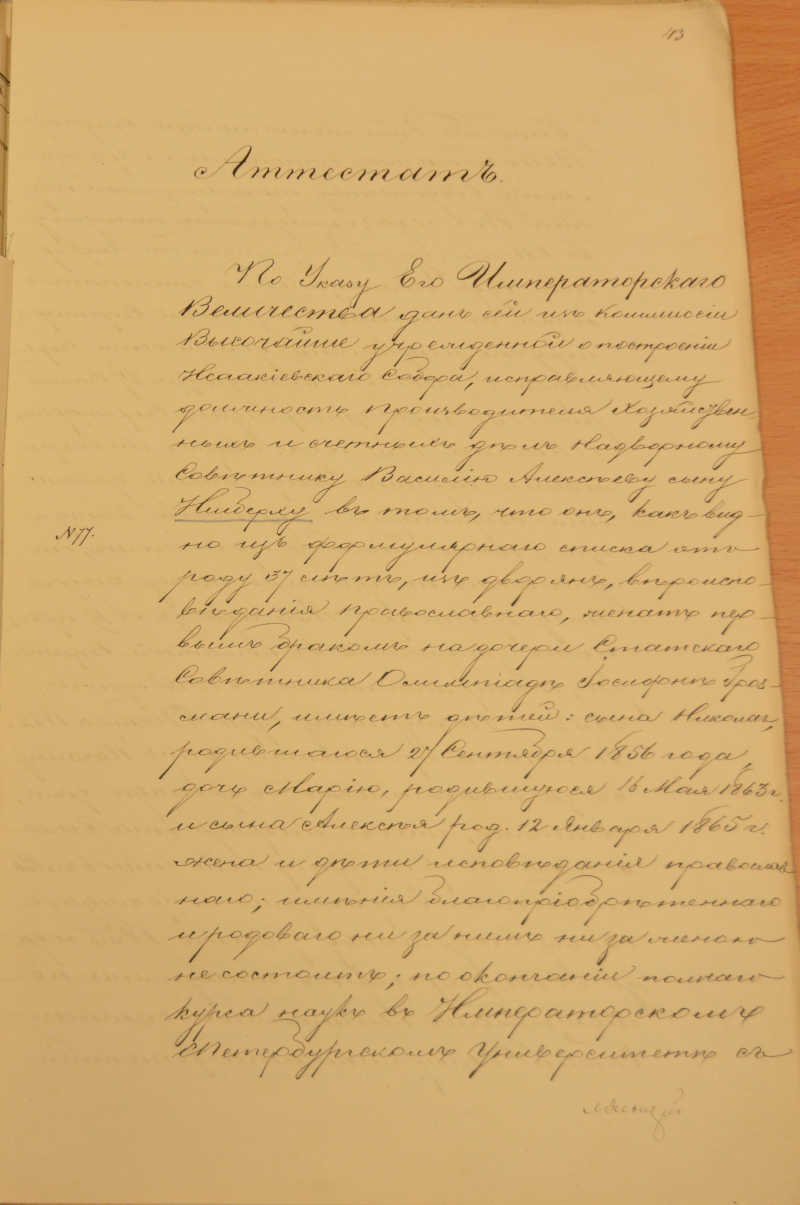 43
Аттестатъ.
По Указу Его Императорскаго
Величества данъ сей изъ Коммиссіи
Высочайше учрежденной о построеніи
Исаакіевскаго Собора, исправляющему
должность Производителя Хозяйствен-
ныхъ и счетныхъ дѣлъ Надворному
Совѣтнику Василію Алексѣеву сыну
въ томъ, что онъ, какъ вид-
№ 77.
но изъ формулярнаго списка отъ
роду 37 лѣтъ, изъ дворянъ, вѣроиспо-
вѣданія православнаго, женатъ пер-
вымъ бракомъ на дочери Статскаго
Совѣтника Олимпіадѣ Іосифовнѣ Гроз-
мани, имѣетъ дѣтей: сына Николая,
родившагося 27 Сентября 1856 года,
дочь Марію, родившуюся 16 Мая 1863 г.
и сына Алексѣя род. 12 Января 1865 г.
жена и дѣти исповѣданія православ-
наго; имѣнія благопріобрѣтеннаго
и родоваго ни за нимъ ни за женою
не состоитъ; по окончаніи полнаго
курса наукъ въ Императорскомъ
СПетербургскомъ Университетѣ съ